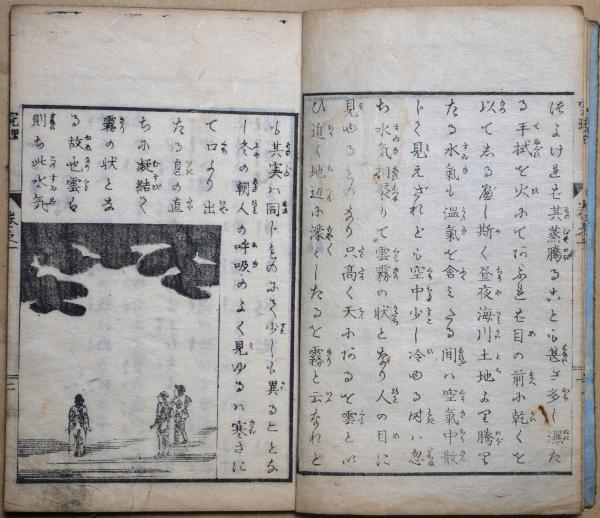 つよければ其蒸騰ることも甚き多し濕た
る手拭を火にてあぶれば目の前に乾くを
以てしるべし斯く昼夜海川土地より騰り
たる水気も温氣を含みたる間ハ空氣中散
じく見えざれども空中少し冷ゆる时ハ忽
ち水気相聚りて雲霧の状となり人の目に
見ゆるものあり只高く天にあるを雲とい
ひ近く地辺に濛くしたるを霧と云なれど
も其実ハ同じものにて少しも異ることな
し冬の朝人の呼吸のよく見ゆるハ寒さに
て口より出
たる息の直
ちに凝結て
霧の状とな
る故也雲も
則ち此水気
究理
巻之一